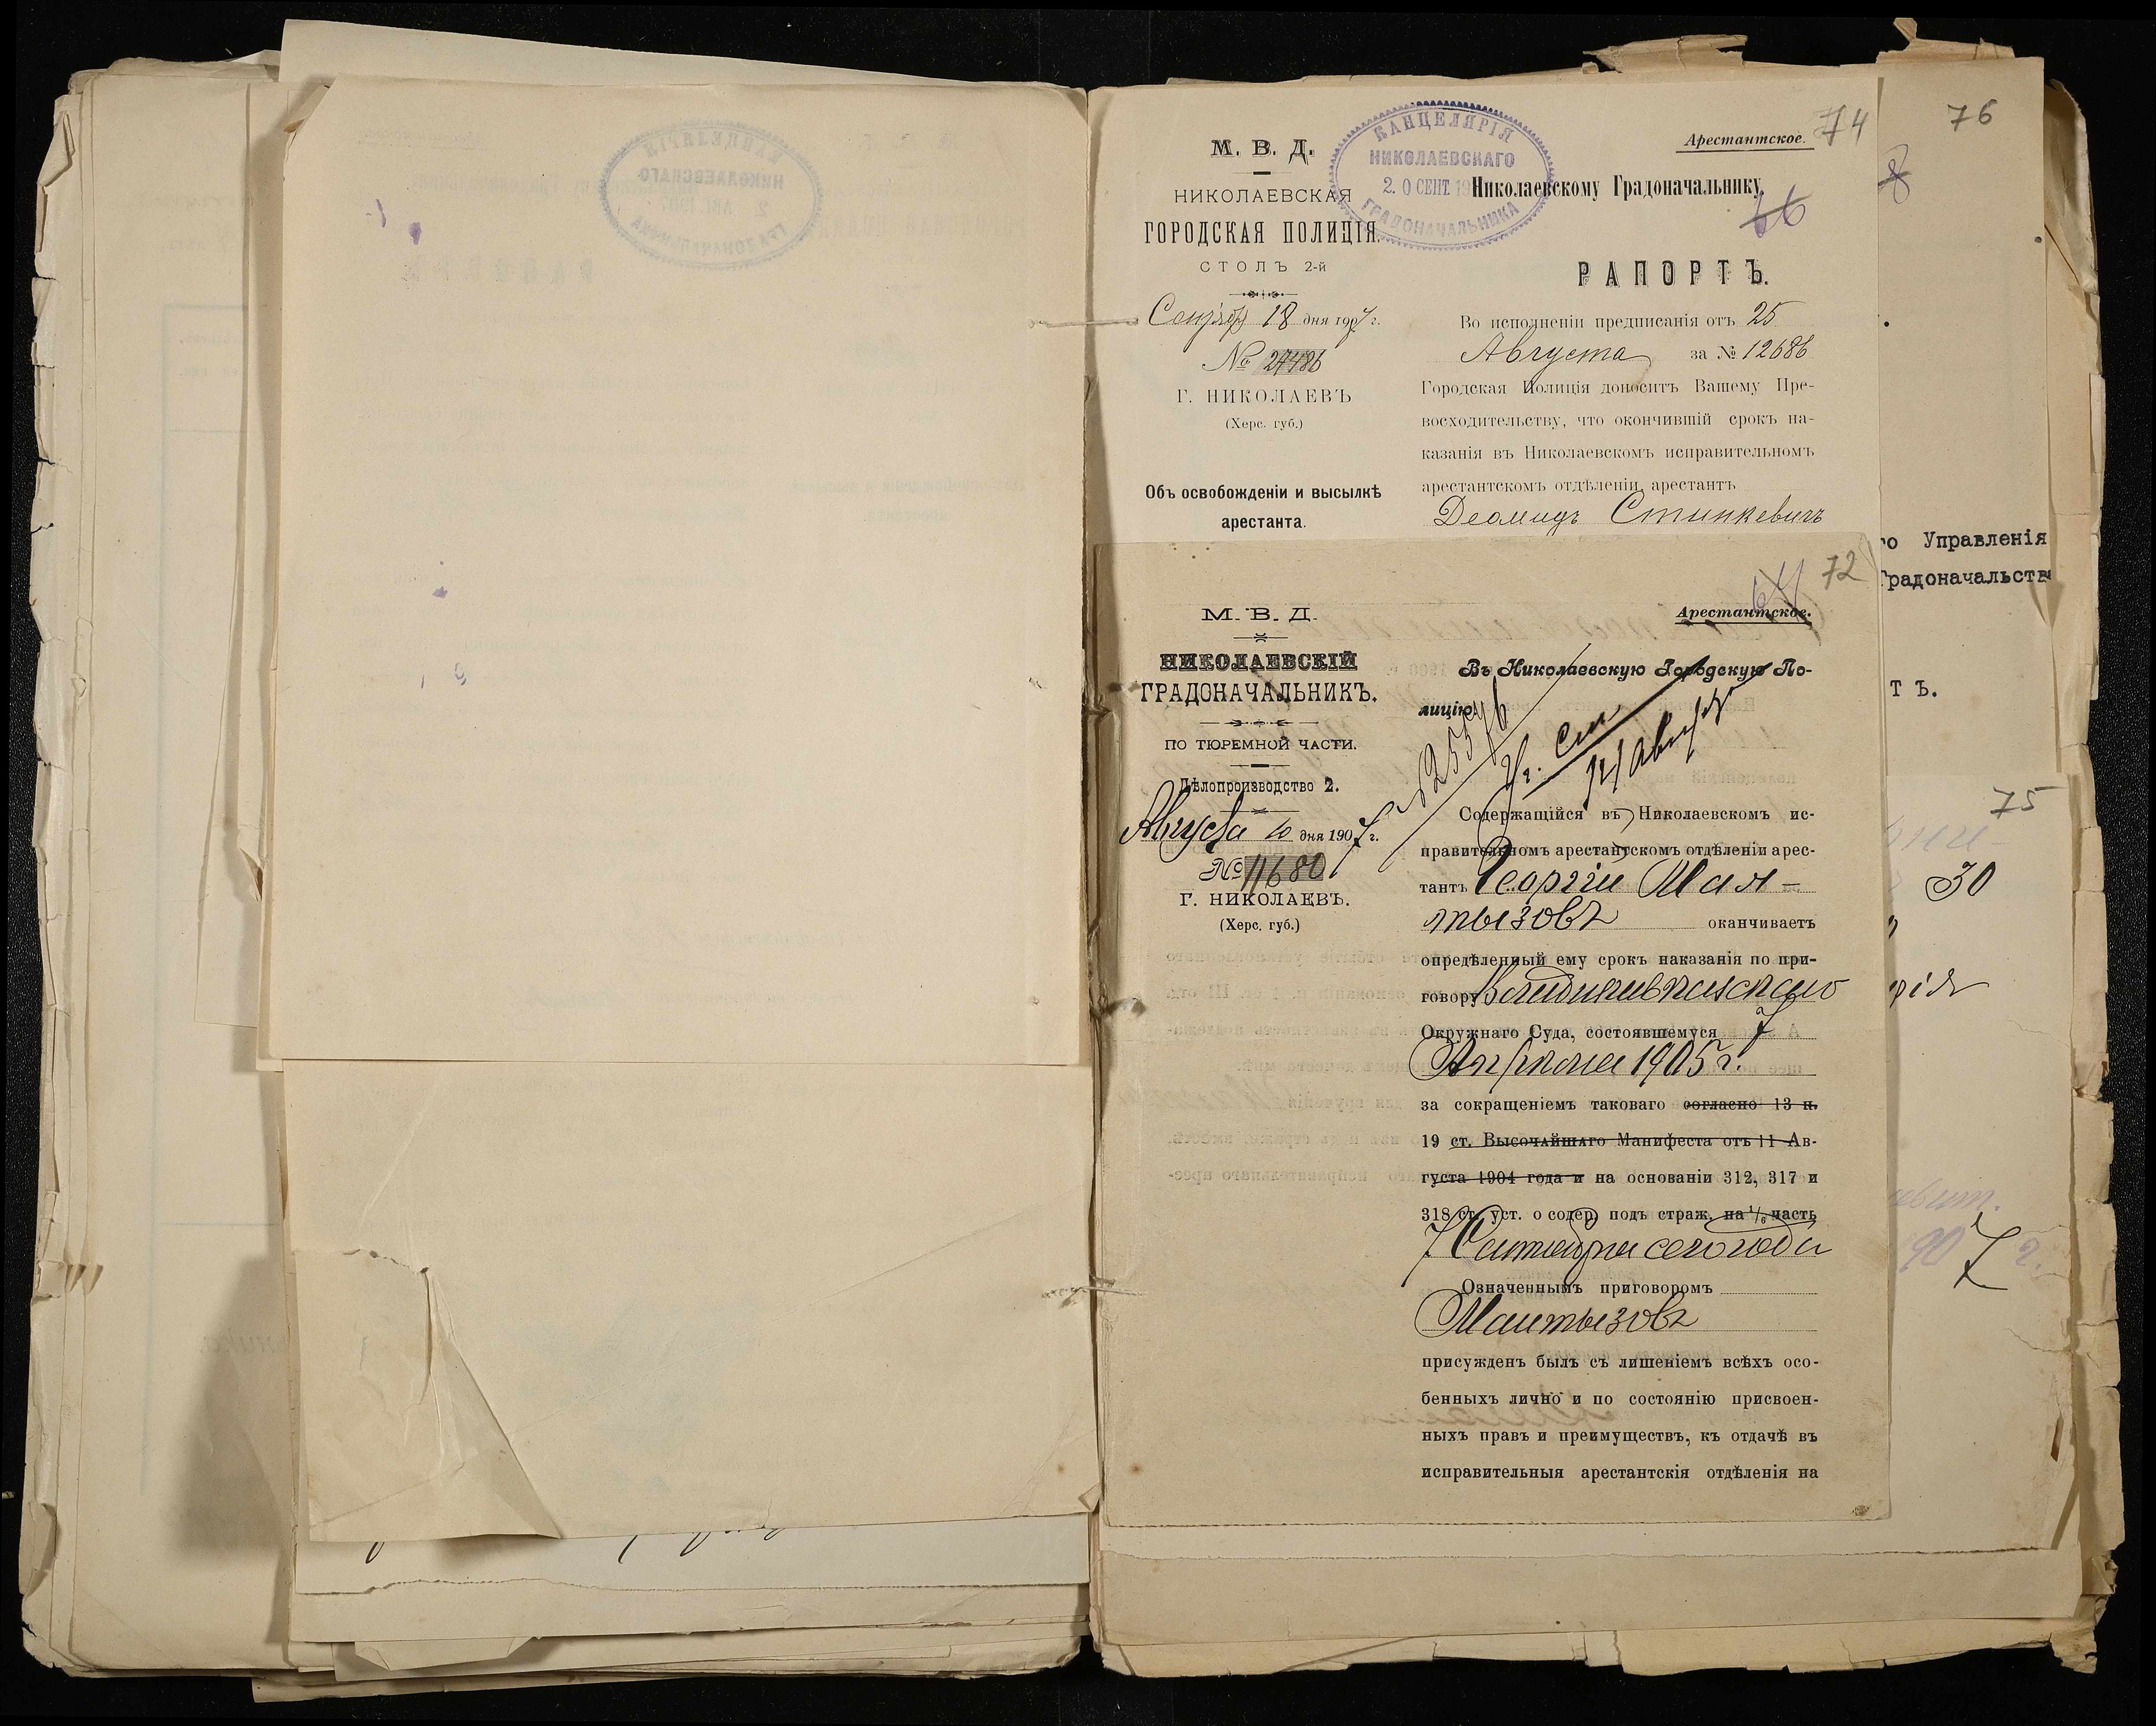 76
74
Арестантское.
М. В. Д.
НИКОЛАЕВСКАЯ
ГОРОДСКАЯ ПОЛИЦІЯ.
СТОЛЪ 2-й
КАНЦЕЛЯРІЯ
НИКОЛАЕВСКАГО
2.0 СЕНТ. 19
ГРАДОНАЧАЛЬНИКА
Николаевскому Градоначальнику.
66
РАПОРТЪ.
18 дня 1907 г.
№ 27486
Г. НИКОЛАЕВЪ
(Херс. губ.)
Объ освобожденіи и высылкѣ
арестанта.
Во исполненіи предписанія отъ 25
Августа за № 12686
Городская Полиція доноситъ Вашему Пре-
восходительству, что окончившій срокъ на-
казанія въ Николаевскомъ исправительномъ
арестантскомъ отдѣленіи арестантъ
Деомидъ Стинкевичъ
го Управленія
Градоначальства
ТЪ.
75
30
72
Арестантское.
М. В. Д.
НИКОЛАЕВСКІЙ
ГРАДОНАЧАЛЬНИКЪ.
ПО ТЮРЕМНОЙ ЧАСТИ.
Дѣлопроизводство 2.
Августа 10 дня 1907 г.
№ 11680
Г. НИКОЛАЕВЪ.
(Херс. губ.)
Въ Николаевскую Городскую По-
лицію.
Содержащійся въ Николаевскомъ ис-
правительномъ арестантскомъ отдѣленіи арес-
тантъ Георгій Мам-
тызовъ оканчиваетъ
опредѣленный ему срокъ наказанія по при-
говору Владикавказскаго
Окружнаго Суда, состоявшемуся 7
Апрѣля 1905 г.
за сокращеніемъ таковаго согласно 13 п.
19 ст. Высочайшаго Манифеста отъ 11 Ав-
густа 1904 года и на основаніи 312, 317 и
318 ст. уст. о содер. подъ страж. на 1/6 часть
7 Сентября сего года
Означеннымъ приговоромъ
Мамтызовъ
присужденъ былъ съ лишеніемъ всѣхъ осо-
бенныхъ лично и по состоянію присвоен-
ныхъ правъ и преимуществъ, къ отдачѣ въ
исправительныя арестантскія отдѣленія на